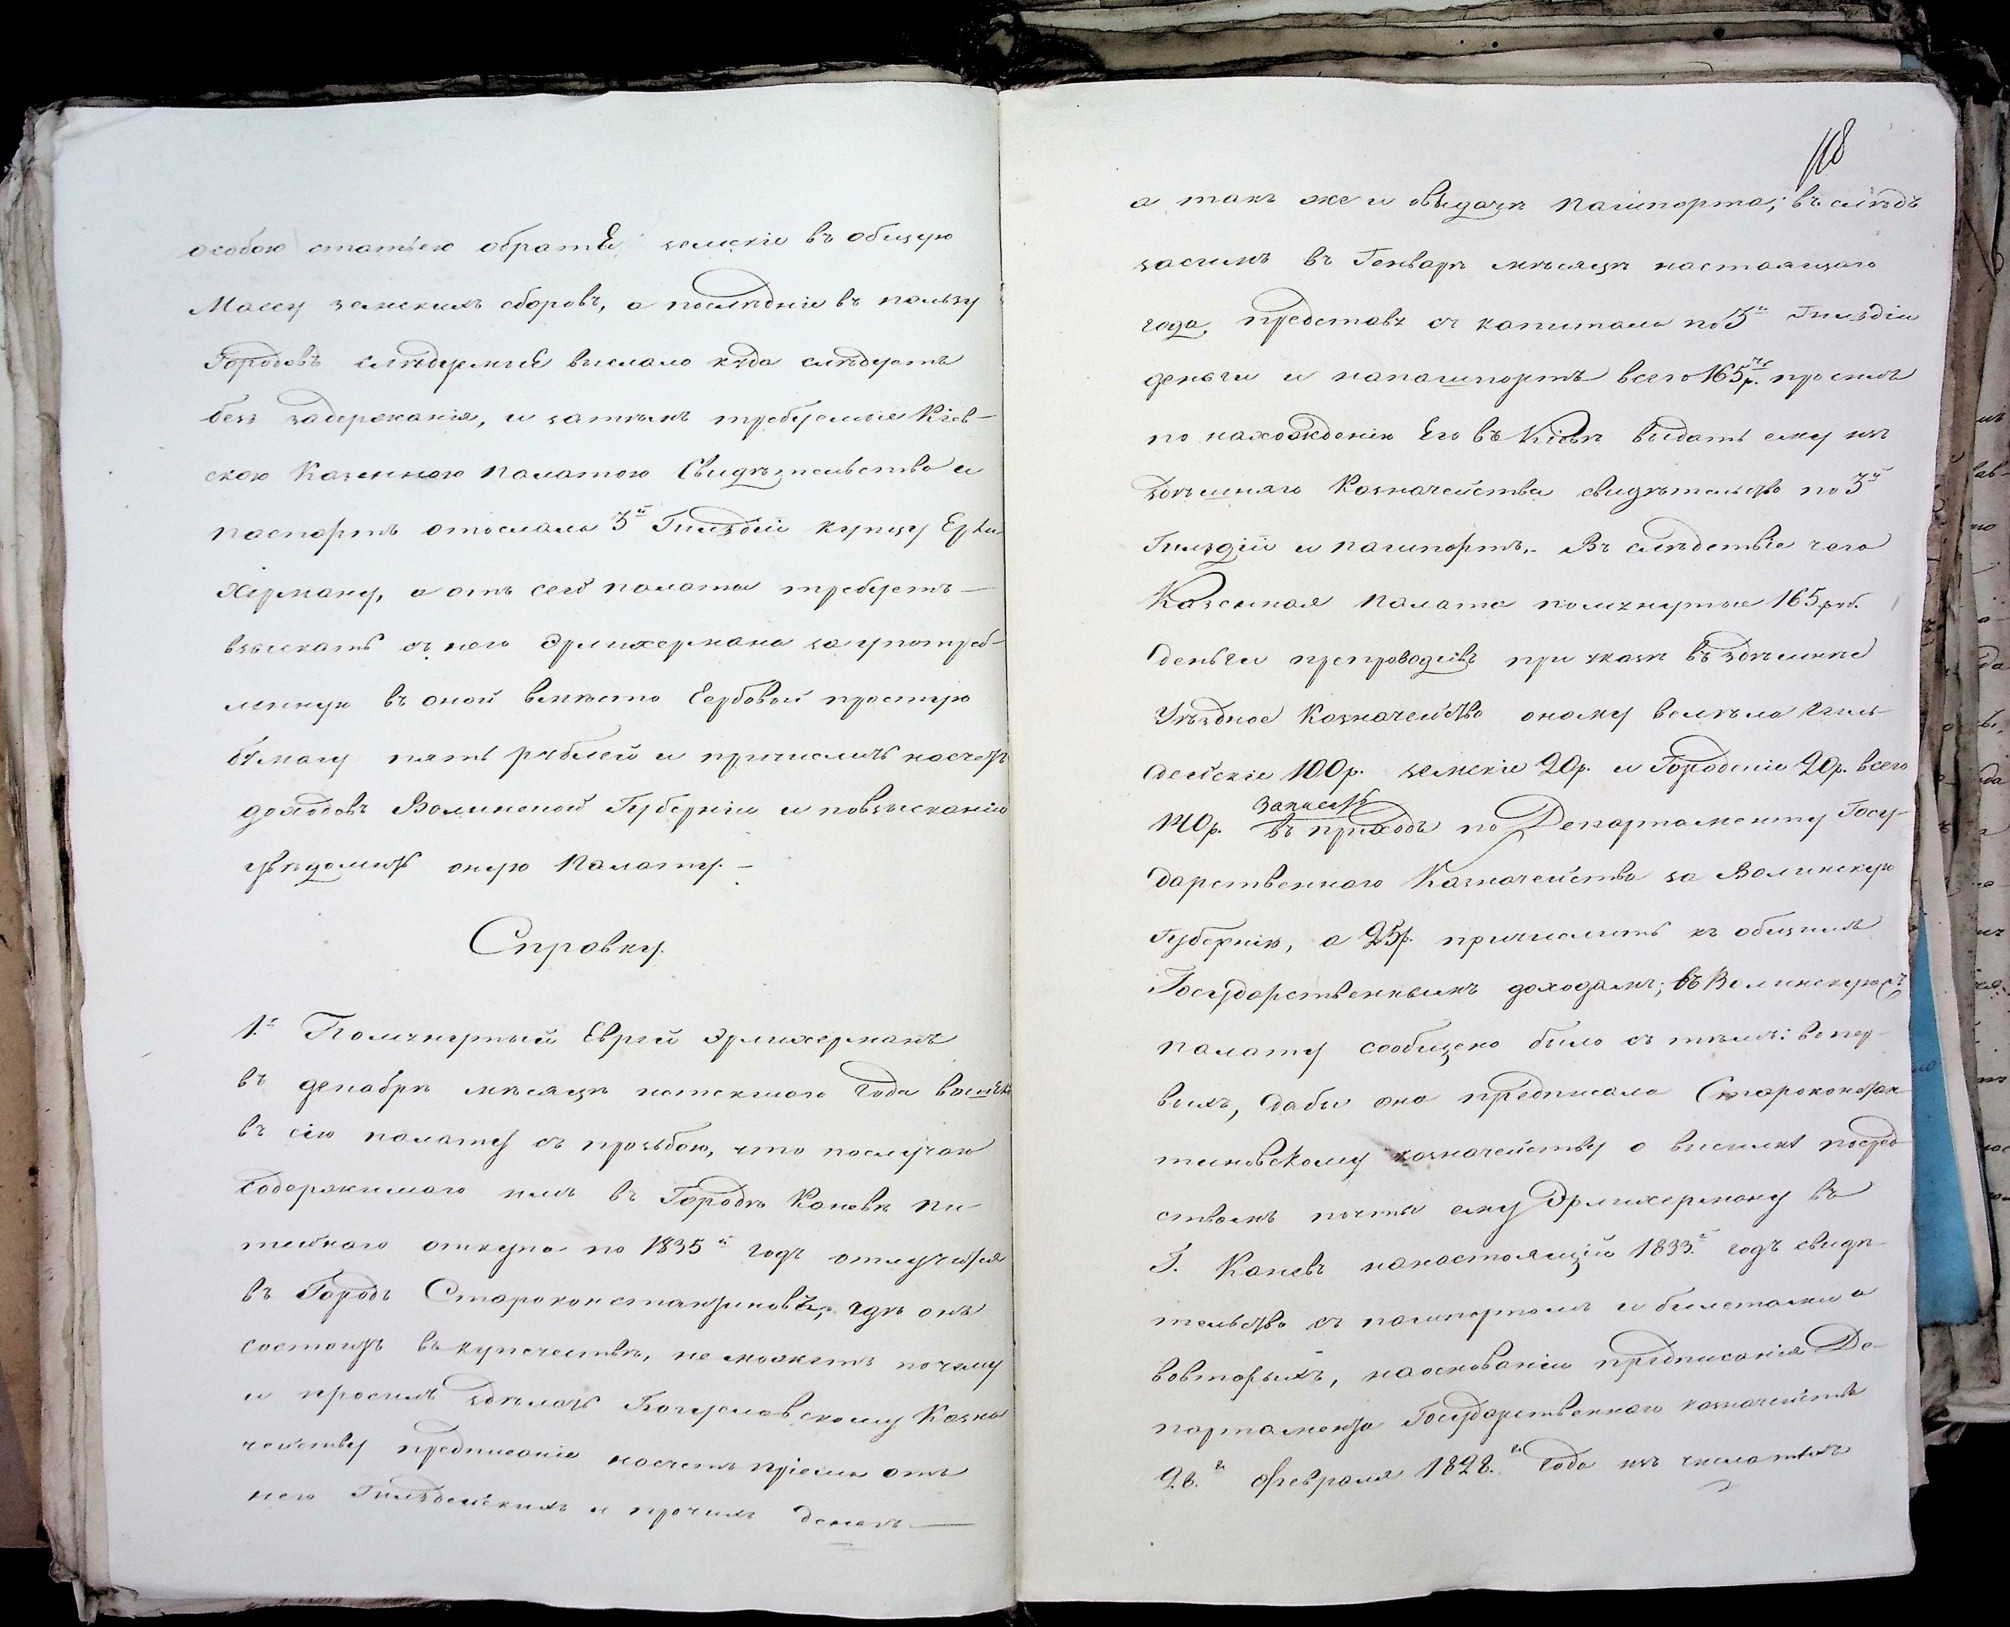 особою статьею обратя земскіе въ общую
Массу земскихъ сборовъ, а послѣдніе въ пользу
Городовъ слѣдуемыя выслало куда слѣдуетъ
безъ задержанія, и затѣмъ требуемые Кіев-
скою Казенною палатою Свидѣтельство и
паспортъ отослало 3й Гильдіи купцу Ерли
Херману, а отъ сей палаты требуетъ
взыскать съ него Эрлихермана за употреб-
ленную въ оной вмѣсто Гербовой простую
бумагу пять рублей и причислить насчетъ
доходовъ Волынской Губерніи и повзысканіи
увѣдомить оную Палату.-
Справку.
1е Помянутый Еврей Эрлихерманъ
въ декабрѣ мѣсяцѣ истекшаго года вошелъ
въ сію палату съ прозьбою, что послучаю
Содержимаго имъ въ Городѣ Каневѣ пи-
тейнаго откупа по 1835й годъ отлучится
въ Городъ Староконстантиновъ, гдѣ онъ
состоитъ въ купечествѣ, не можетъ почему
и просилъ здѣлать Богуславскому Казна
чейству предписаніе насчетъ пріема отъ
него Гильдейскихъ и прочихъ денегъ
118
а такъ же и овыдачѣ пашпорта; въ слѣдъ
засимъ въ Генварѣ мѣсяцѣ настоящаго
года, представя съ капитала по 3й Гильдіи
деньги и напашпортъ всего 165р. просилъ
по нахожденію Его въ Кіевѣ выдать ему изъ
здѣшняго Казначейства свидѣтельство по 3й
Гильдіи и пашпортъ,- Въ слѣдствіе чего
Казенная Палата помянутые 165 руб.
деньги препроводивъ при указѣ въ здѣшнее
Уѣздное Казначейство оному велѣла гиль-
дейскіе 100р. земскіе 20р. и Городскіе 20р. всего
140р. записать въ приходъ по Департаменту Госу-
дарственнаго Казначейства за Волынскую
Губернію, а 25р. причислить къ общимъ
Государственнымъ доходамъ; въ Волынскую съ
палату сообщено было съ тѣмъ: вопер-
выхъ, дабы она предписала Староконстан
тиновскому казначейству о высылкѣ посред
ствомъ почты ему Эрлихерману въ
Г. Каневъ нанастоящій 1833й годъ свидѣ-
тельство съ пашпортомъ и билетами а
вовторыхъ, наоснованіи предписанія Де-
партамента Государственнаго казначейства
28го февраля 1828го года изъ числа тѣхъ